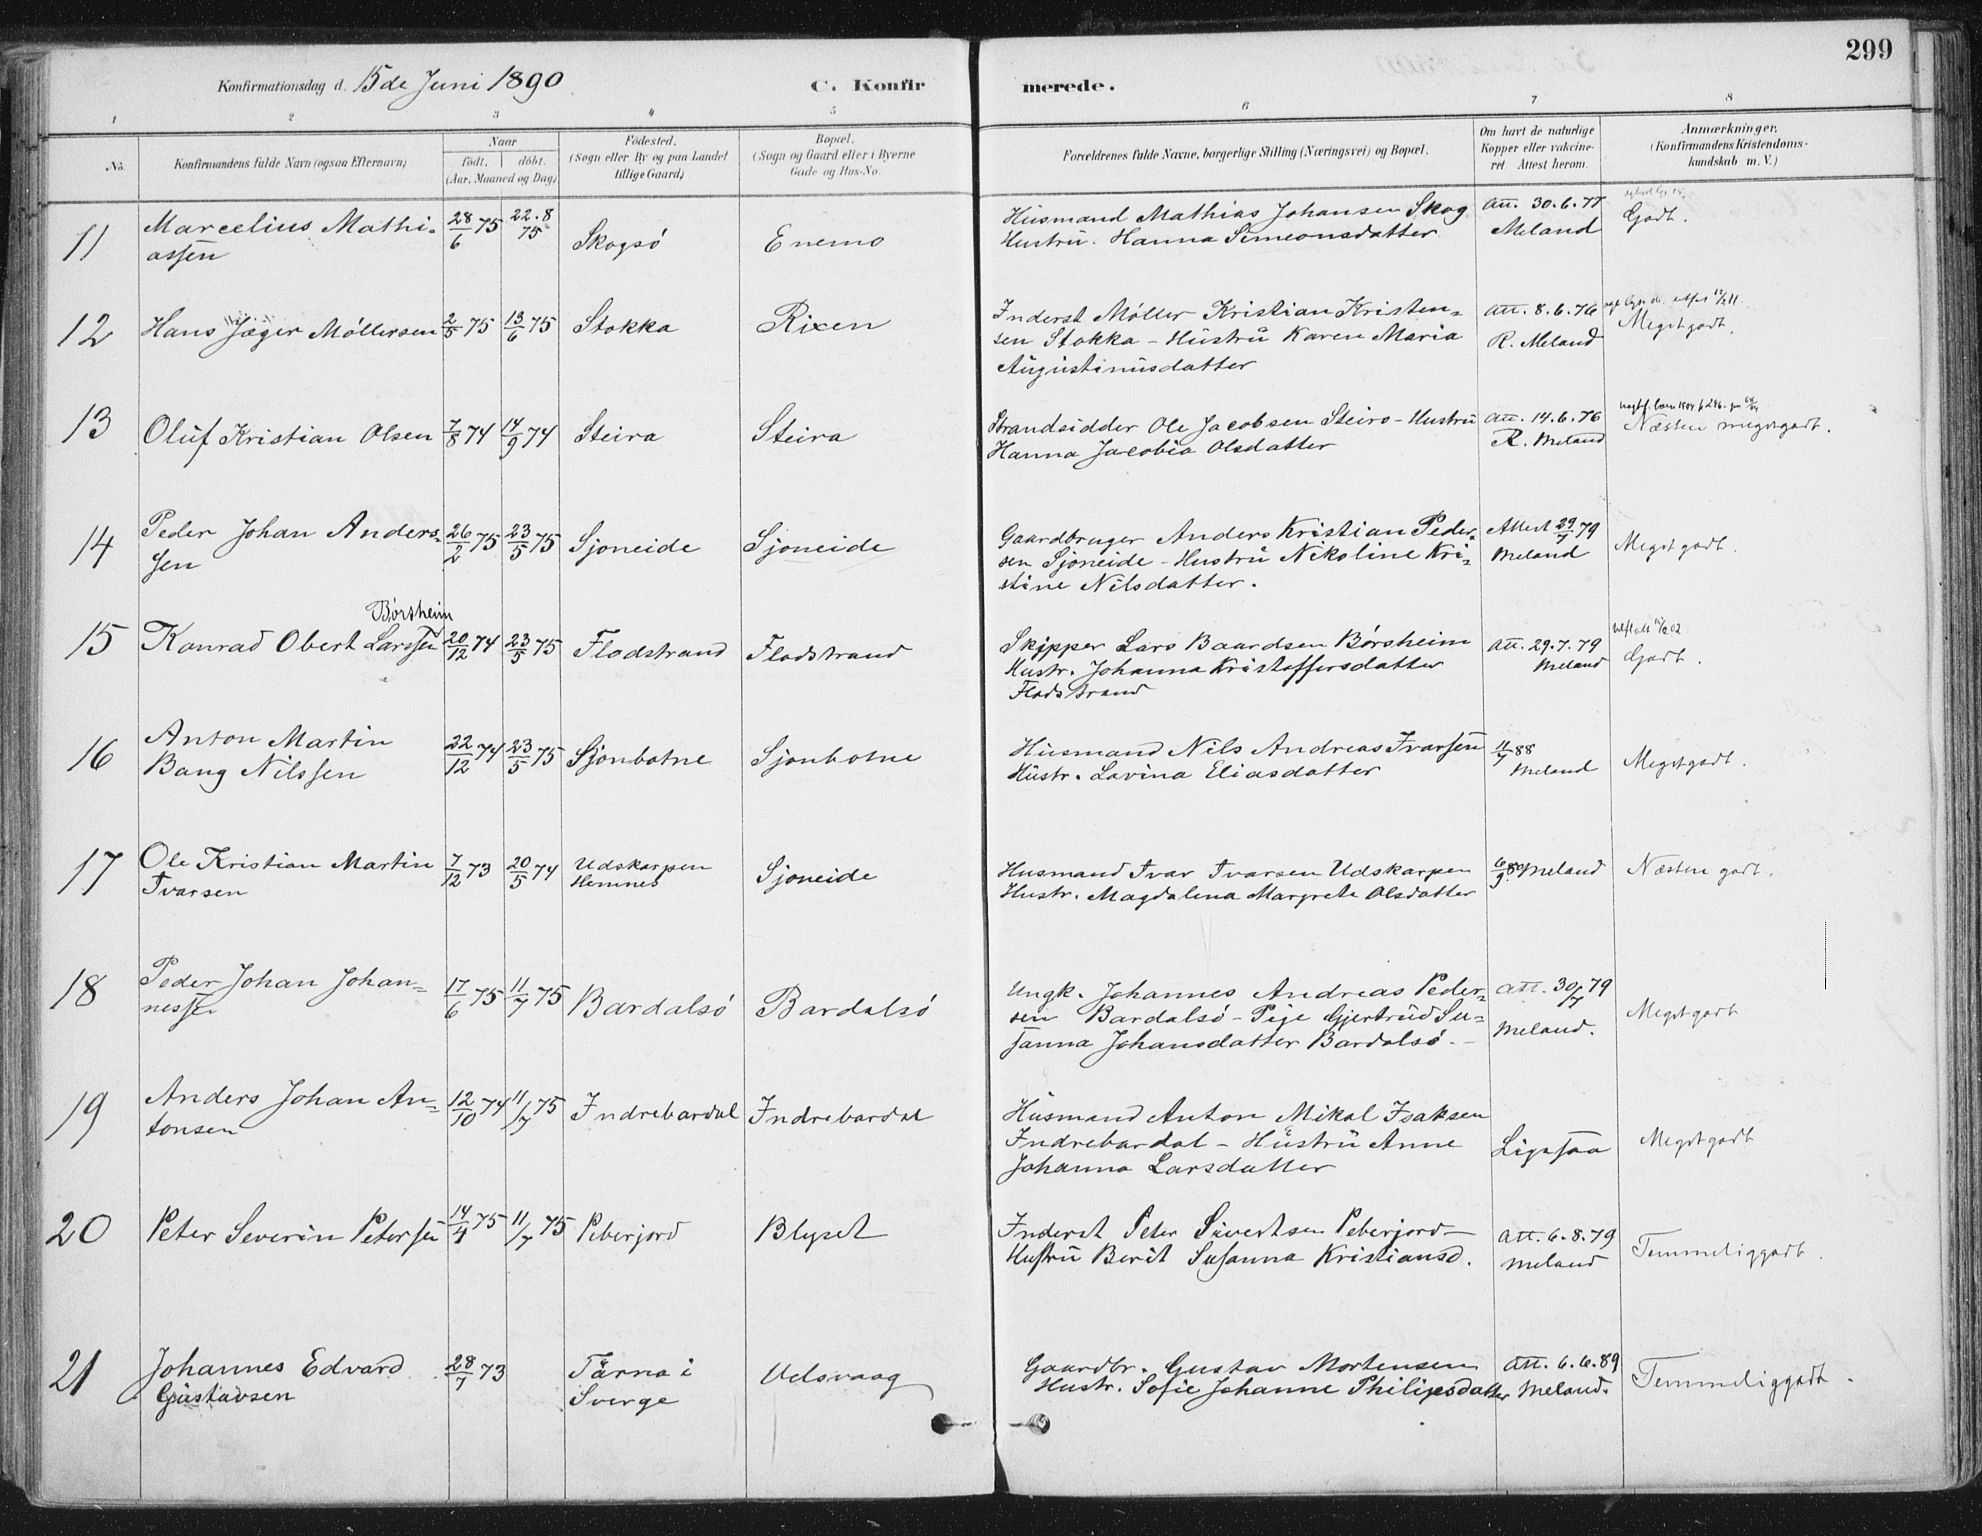 299
Konfirmationsdag d. 15de Juni 1890
C. Konfirmerede.
1 2 3 4 5 6 7 8
No.
Konfirmandens fulde Navn (ogsaa Efternavn)
Naar
født. | døbt.
(Aar, Maaned og Dag)
Fødested.
(Sogn eller By og paa Landet
tillige Gaard)
Bopæl.
(Sogn og Gaard eller i Byerne
Gade og Hus-No.
Forældrenes fulde Navne, borgerlige Stilling (Næringsvei) og Bopæl.
Om havt de naturlige
Kopper eller vakcine-
ret Attest herom.
Anmærkninger.
(Konfirmandens Kristendoms-
kundskab m. V.)
11 Marcelius Mathi- 28/6 75 22.8 75 Skogsö Enemo
assen
Husmand Mathias Johansen Skog Att. 30.6.77 Godt.
Hustru. Hanna Simeonsdatter Meland
12 Hans Jæger Möllersen 2/5 75 13/6 75 Stokka Rixen
Inderst Møller Kristian Kristen- Att. 8.6.76 Megetgodt.
sen Stokka - Hustru Karen Maria R. Meland
Augustinusdatter
13 Oluf Kristian Olsen 7/8 74 14/9 74 Steira Steira
Strandsidder Ole Jacobsen Steiro - Hustru Att. 14.6.76 Næsten megetgodt.
Hanna Jacobia Olsdatter R. Meland
14 Peder Johan Anders- 26/2 75 23/5 75 Sjoneide Sjoneide
sen
Gaardbruger Anders Kristian Peder- Attest 29/7 79 Meget godt.
sen Sjoneide - Hustru Nikoline Kri- Meland
stine Nilsdatter.
Börsheim
15 Konrad Obert Larssen 20/12 74 23/5 75 Flodstrand Flodstrand
Skipper Lars Baardsen Børsheim Att. 29.7.79 Godt.
Hustr. Johanna Kristoffersdatter Meland
Flodstrand
16 Anton Martin 22/12 74 23/5 75 Sjonbotne Sjonbotne
Bang Nilssen
Husmand Nils Andreas Ivarsen 11/7 88 Megetgodt.
Hustr. Lovina Eliasdatter Meland
17 Ole Kristian Martin 7/12 73 20/5 74 Udskarpen Sjoneide
Ivarsen Hemnes
Husmand Ivar Ivarsen Udskarpen 6/9 80 Meland Næsten godt.
Hustr. Magdalena Margrete Olsdatter
18 Peder Johan Johan- 17/6 75 11/7 75 Bardalsö Bardalsö
nessen
Ungk. Johannes Andreas Peder- Att. 30/7 79 Megetgodt
sen Bardalsö - Pige Gjertrud Su- Meland.
sanna Johansdatter Bardalsö. -
19 Anders Johan An- 12/10 74 11/7 75 Indrebardal Indrebardal
tonsen
Husmand Anton Mikal Isaksen
Indrebardal - Hustru Anne Ligesaa Megetgodt
Johanna Larsdatter
20 Peter Severin Petersen 14/4 75 11/7 75 Peberjord Blyset
Inderst Peter Sivertsen Peberjord - Att. 6.8.79 Temmeliggodt.
Hustru Berit Susanna Kristiansd. Meland
21 Johannes Edvard 28/7 73 Tärna i Uelsvaag
Gustavsen Sverge
Gaardbr. Gustav Mortensen Att. 6.6.89 Temmeliggodt.
Hustr. Sofie Johanne Philipsdatter Meland.